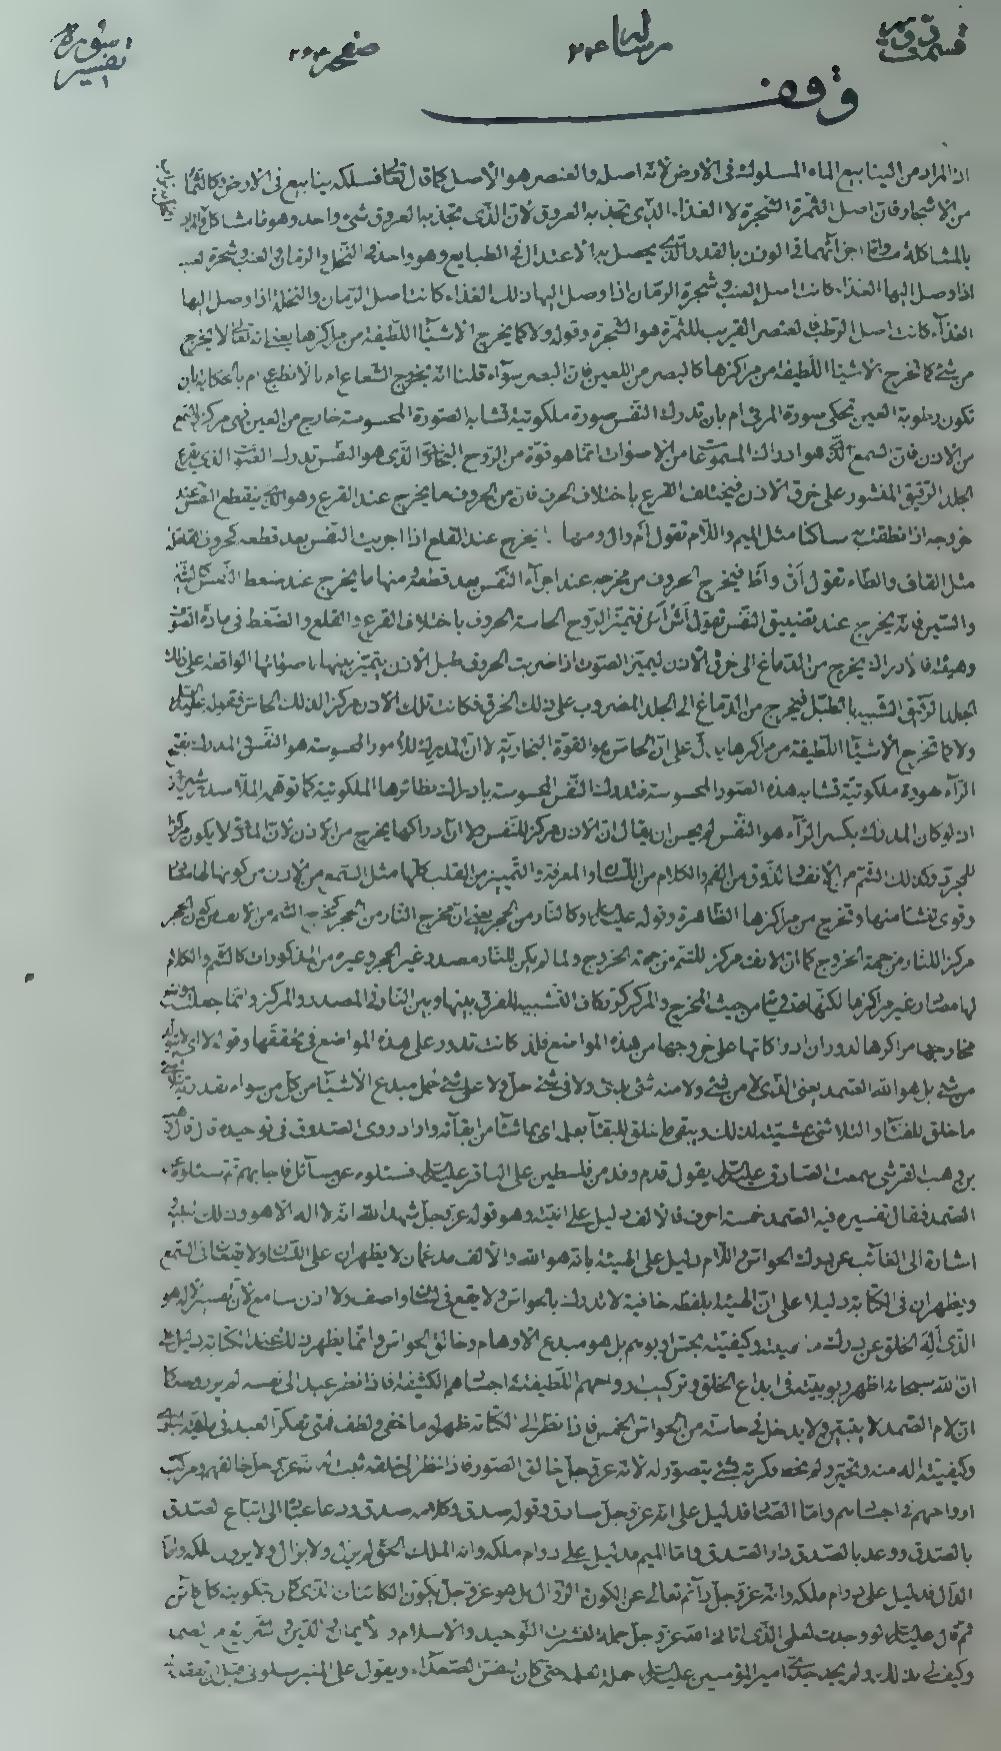 صفحه
وقف
اذ المراد من الينابيع الماء المسلوك فى الارض لانه اصله والعنصر هو الأصل كما قال تعالى فسلكه ينابيع فى الارض
من الاشجار فان اصل الثمرة الشجرة لا الغذاء الذى تجذبه العروق لان الذى تجذبه العروق شىء واحد وهو
بالمشاكلة اجزائهما فى الوزن بالقدر الذى يحصل به الاعتدال فى الطبايع وهو واحد فى النخل والرمان والعنب
اذا وصل اليها الغذاء كانت اصل العنب وشجرة الرمان اذا وصل اليها ذلك الغذاء كانت اصل الرمان والنخلة اذا وصل اليها
الغذاء كانت اصل الرطب فالعنصر القريب للثمرة هو الشجرة وقوله ولا كما يخرج الاشياء اللطيفة من مراكزها يعنى انه تعالى لا يخرج
من شىء كما تخرج الاشياء اللطيفة من مراكزها كالبصر من العين فان البصر سواء قلنا انه بخروج الشعاع ام بالانطباع ام بالحكاية بان
تكون رطوبة العين تحكى صورة المرئى ام بان تدرك النفس صورة ملكوتية تشابه الصورة المحسوسة خارج من العين فهى مركز
من الاذن فان السمع الذى هو ادراك المسموعات من الاصوات انما هو قوة من الروح البخارى الذى هو النفس تدرك الصوت الذى يقرع
الجلد الرقيق المنشور على خرق الاذن فيختلف القرع باختلاف الحرف فان من الحروف ما يخرج عند القرع وهو الذى ينقطع النفس عند
خروجه اذا نطقت به ساكنا مثل الميم واللام تقول ام وال ومنها ما يخرج عند القلع اذا اجريت النفس بعد قطعه كحروف القلقلة
مثل القاف والطاء تقول اق واط فيخرج الحروف من مخرجه عند اجراء النفس بعد قطعه ومنها ما يخرج عند ضغط النفس
والسين فانه يخرج عند تضييق النفس تقول اش اس فتميز الروح الحاسة الحروف باختلاف القرع والقلع والضغط فى مادة الصوت
وهيئته فالادراك يخرج من الدماغ الى خرق الاذن ليميز الصوت اذا ضربت الحروف طبل الاذن يتميز بينها باصواتها الواقعة على ذلك
الجلد الرقيق الشبيه بالطبل فيخرج من الدماغ الى الجلد المضروب على ذلك الخرق فكانت تلك الاذن مركز الذلك الحاس فقوله عليه السلام
ولا كما تخرج الاشياء اللطيفة من مراكزها يدل على ان الحاس هو القوة البخارية لا ان المدرك للأمور المحسوسة هو النفس المدرك بفتح
الراء صورة ملكوتية تشابه هذه الصور المحسوسة فتدرك النفس المحسوسة بادراك نظائرها الملكوتية كما توهمه الملا صدر
اذ لو كان المدرك بكسر الراء هو النفس لم يحسن ان يقال ان الاذن مركز للنفس ولا ان ادراكها يخرج من الاذن لان المادى لا يكون مركزا
للمجرد وكذلك الشم من الانف والذوق من الفم والكلام من اللسان والمعرفة والتمييز من القلب كلها مثل السمع من الاذن من كونها لها
وقوى تنشأ منها وتخرج من مراكزها الظاهرة وقوله عليه السلام وكالنار من الحجر يعنى ان تخرج النار من الحجر كخروج الشم من الانف من كون الحجر
مركز للنار من جهة الخروج كما ان الانف مركز للشم من جهة الخروج ولما لم يكن للنار مصدر غير الحجر وغيره من المذكورات كالشم والكلام
لها مصادر غير مراكزها لكنها من حيث المخرج والمركز كرر كاف التشبيه للفرق بينها وبين النار فى المصدر والمركز وانما جعلت
مخارجها مراكزها لدوران ادراكاتها على خروجها من هذه المواضع فلذا كانت تدور على هذه المواضع فى تحققها وقوله لا
من شىء بل هو الله الصمد يعنى الذى لا من شىء ولا منه شىء ولا فى شىء حل ولا على شىء حمل مبدع الاشياء من كل من سواه بقدرته
ما خلق للفناء والتلاشى بمشيته لذلك ويبقى ما خلق للبقاء بعلمه اى بما شاء من ابقائه واراد وروى الصدوق فى توحيده قال قال
بن وهب القرشى سمعت الصادق عليه السلام يقول قدم وفد من فلسطين على الباقر عليه السلام فسئلوه عن مسائل فاجابهم ثم سئلوه عن
الصمد فقال تفسيره فيه الصمد خمسة احرف فالالف دليل على انيته وهو قوله عز وجل شهد الله انه لا اله الا هو وذلك تنبيه
اشارة الى الغائب عن درك الحواس واللام دليل على الهيته بانه هو الله والالف مدغمان لا يظهران على اللسان ولا يقعان فى السمع
ويظهران فى الكتابة دليلا على ان الهيته بلطفه خافية لا تدرك بالحواس ولا يقع فى لسان واصف ولا اذن سامع لان تفسير الاله هو
الذى اله الخلق عن درك ماهيته وكيفيته بحس او بوهم بل هو مبدع الاوهام وخالق الحواس وانما يظهر ذلك عند الكتابة دليل على
ان الله سبحانه اظهر ربوبيته فى ابداع الخلق وتركيب ارواحهم اللطيفة فى اجسادهم الكثيفة فاذا نظر عبد الى نفسه لم ير روحه كما
ان لام الصمد لا يتبين ولا يدخل فى حاسة من الحواس الخمس فاذا نظر الى الكتابة ظهر له ما خفى ولطف فمتى تفكر العبد فى ماهية
وكيفيته اله منه وتحير ولم يحط فكرته بشىء يتصور له لانه عز وجل خالق الصور فاذا نظر الى خلقه ثبت له انه عز وجل خالقهم ومركب
ارواحهم فى اجسادهم واما الصاد فدليل على انه عز وجل صادق وقوله صدق وكلامه صدق ودعا عباده الى اتباع الصدق
بالصدق ووعد بالصدق دار الصدق واما الميم فدليل على دوام ملكه وانه الملك الحق لم يزل ولا يزال ولا يزول ملكه واما
الدال فدليل على دوام ملكه وانه عز وجل دائم تعالى عن الكون والزوال بل هو عز وجل يكون الكائنات الذى كان بتكوينه كل كائن
ثم قال عليه السلام لو وجدت لعلمى الذى اتانى الله عز وجل حملة لنشرت التوحيد والاسلام والايمان والدين والشرايع من الصمد
وكيف لى بذلك ولم يجد جدى امير المؤمنين عليه السلام حملة لعلمه حتى كان يتنفس الصعداء ويقول على المنبر سلونى قبل ان تفقدونى